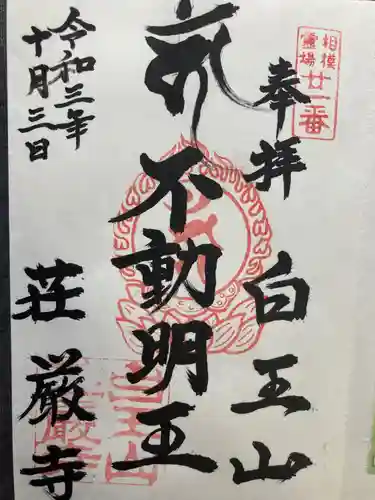 相模
霊場
廿一番
奉拝
白王山
不動明王
令和三年
十月三日
荘厳寺